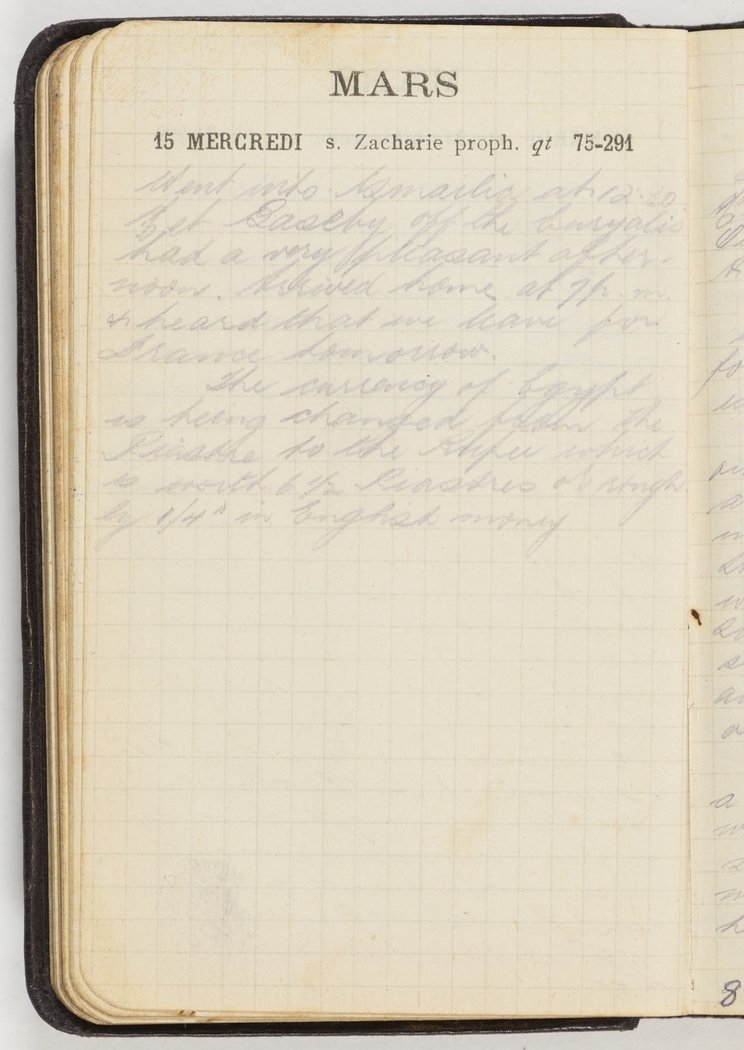 MARS
15 MERCREDI s. Zacharie proph. qt 75-291
Went into Ismailia at 12.30
Met off the Euryalis
had a very pleasant after-
noon. Arrived home at 7 p.m.
& heard that we leave for
France tomorrow.
The currency of Egypt
is being changed from the
Piastre to the Rupee which
is worth 6 1/2 Piastres or rough
by 1/4 in English money
8